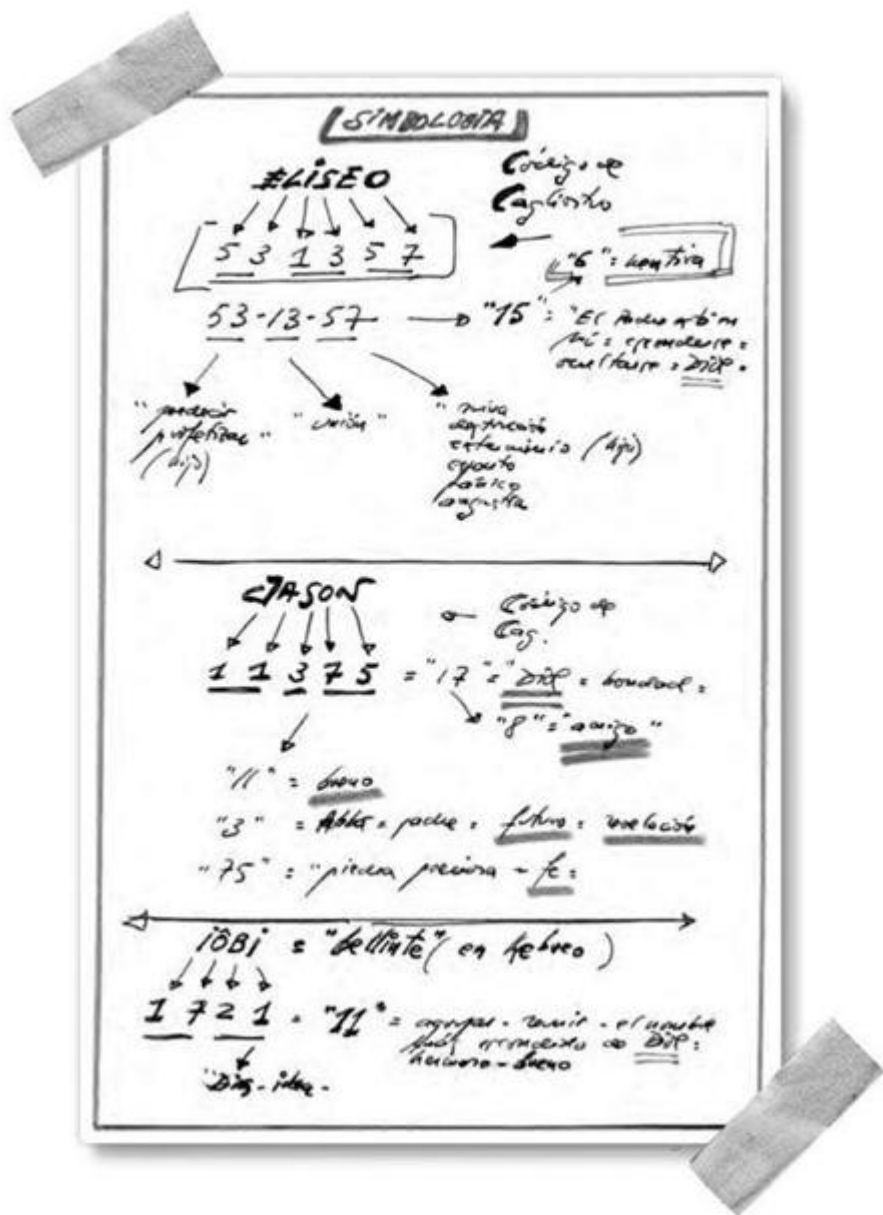 SIMBOLOGÍA
ELISEO
Código de
Cagliostro
5 3 1 3 5 7
"6" = mentira
53-13-57 → "15" = "El Padre está en
mí = esconderse =
ocultarse = DIOS =
"predecir
profetizar"
(hijo)
"unión"
"ruina
destrucción
exterminio (hijo)
espanto
pánico
angustia
JASON
Código de
Cag.
1 1 3 7 5 = "17" = "DIOS = bondad =
"8" = "amigo"
"11" = bueno
"3" = Abbā = padre = futuro = revelación
"75" = "piedra preciosa - fe =
iôBi = (en hebreo)
1 7 2 1 = "11" = - reunir - el nombre
más escondido de DIOS =
hermoso - bueno